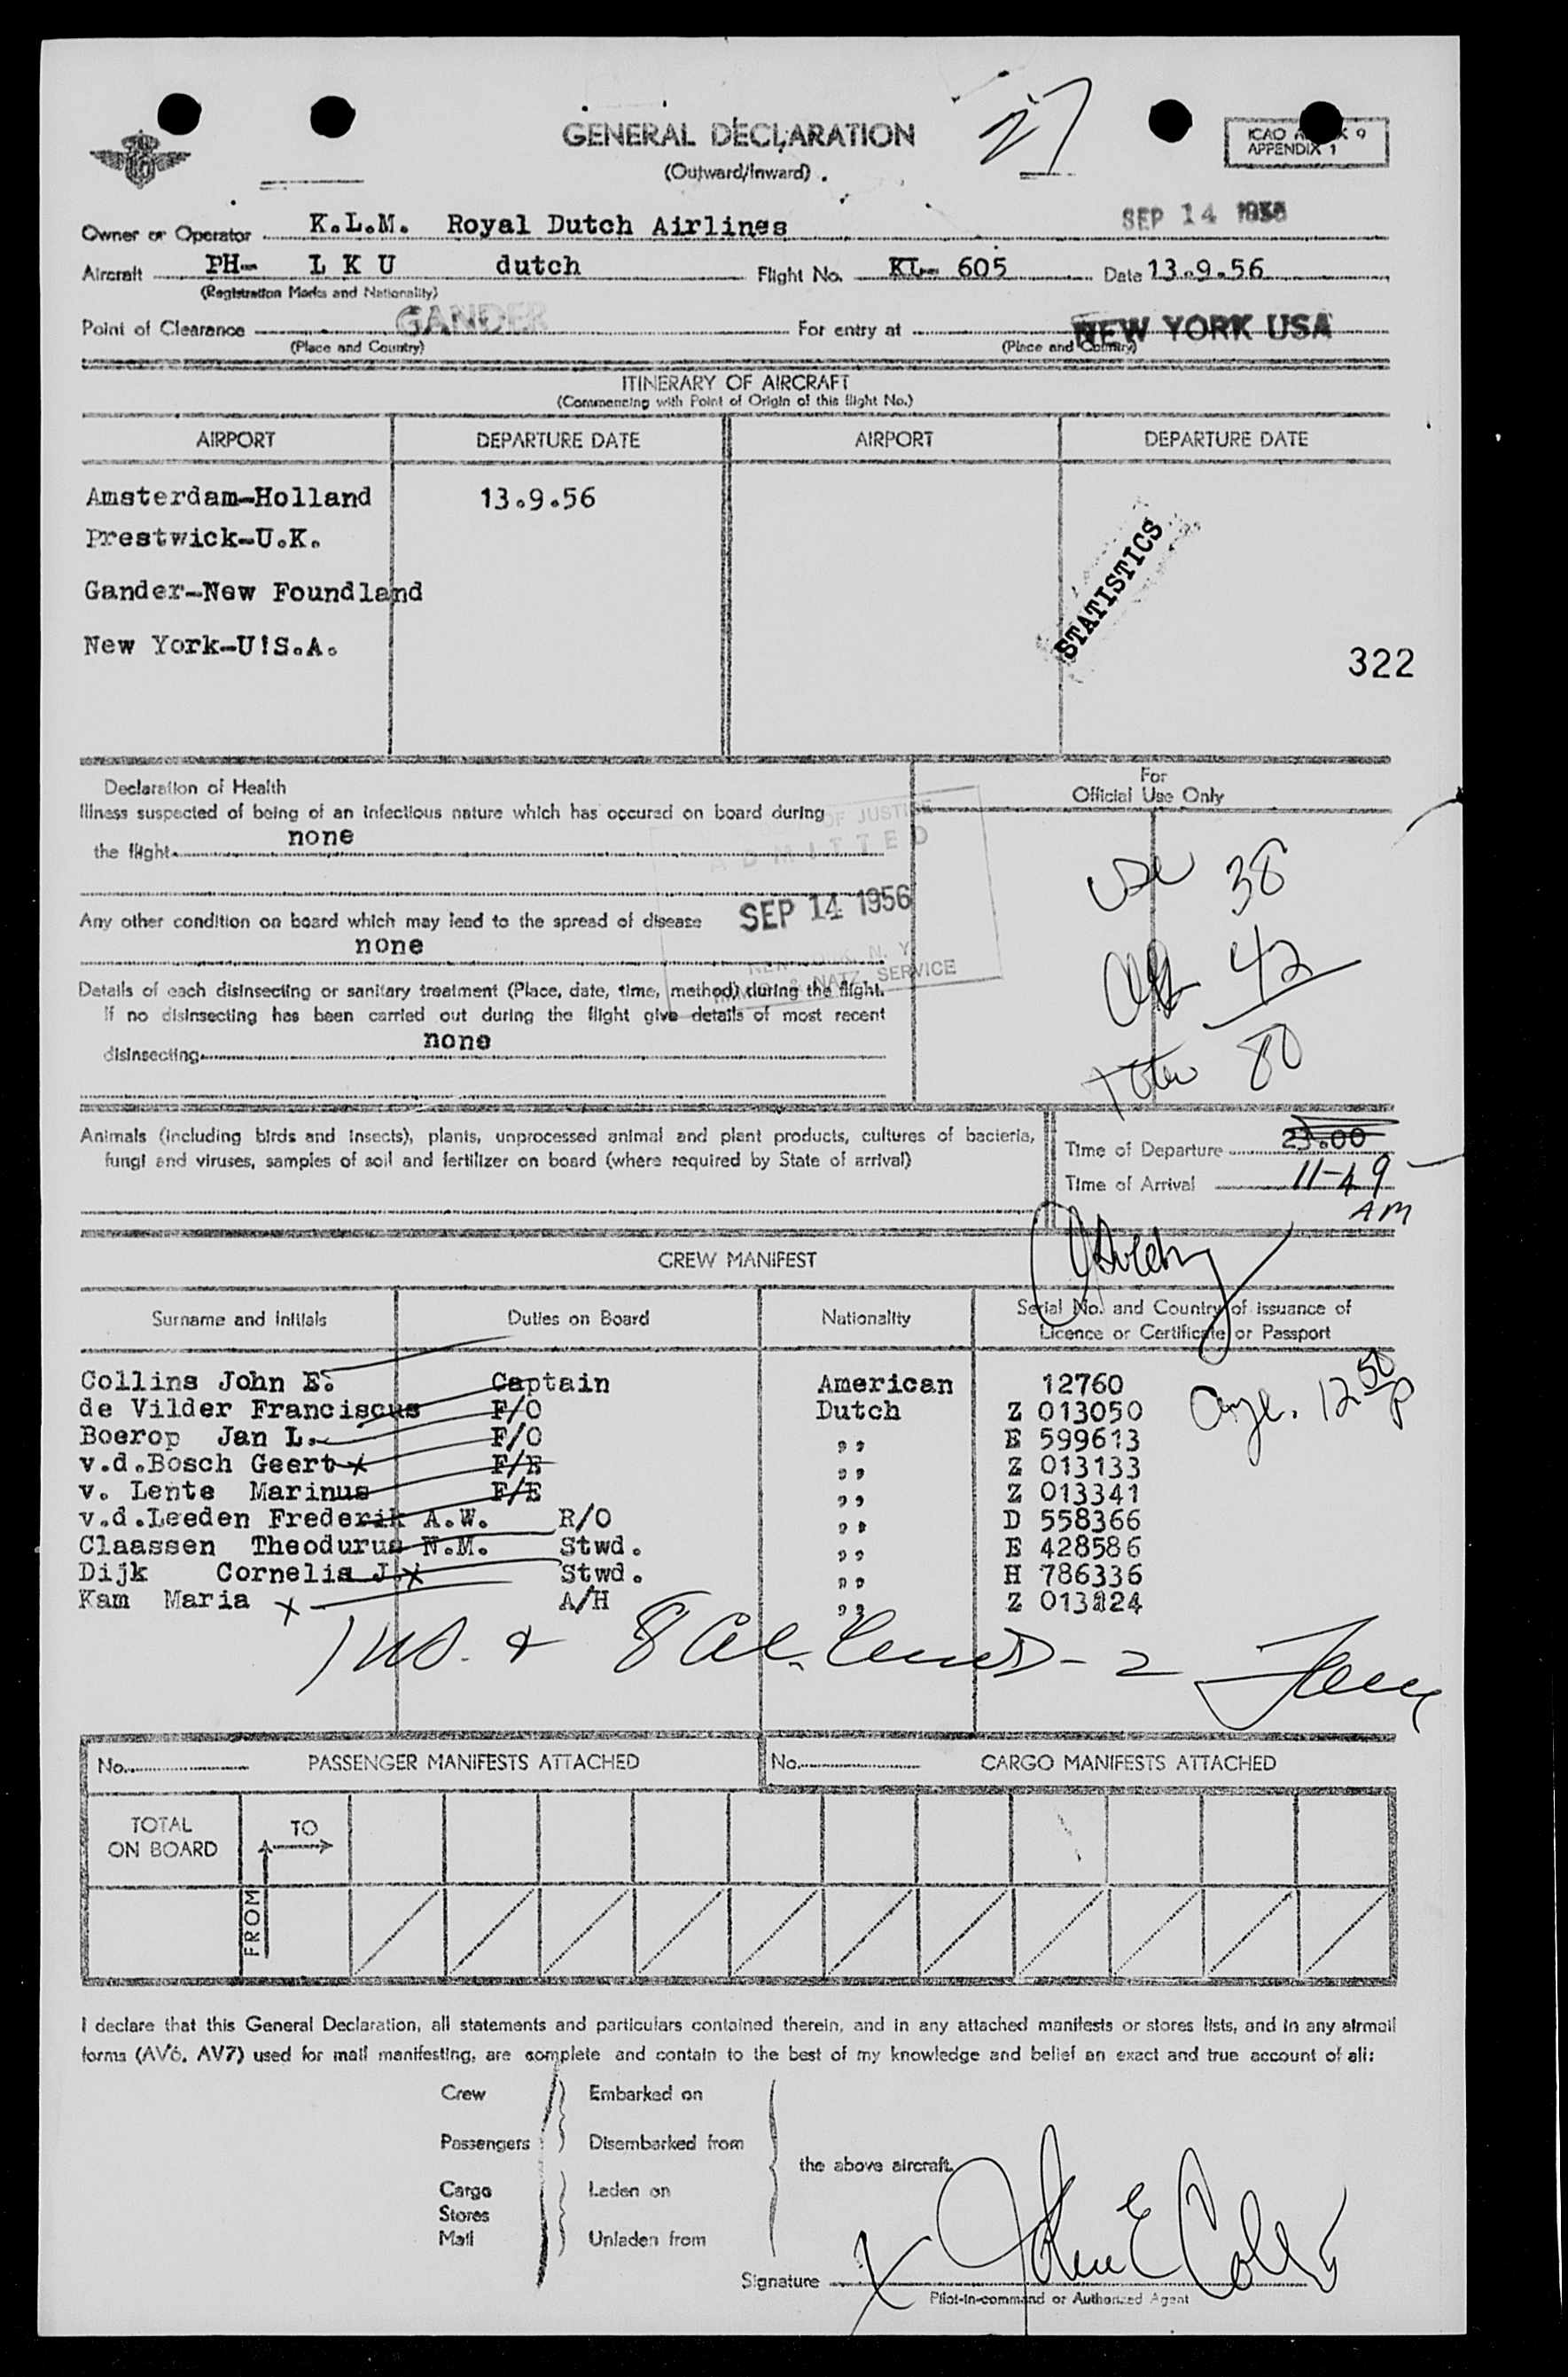 27
GENERAL DECLARATION
(Outward/Inward)
ICAO ANNEX 9
APPENDIX 1
SEP 14 1956
Owner or Operator K.L.M. Royal Dutch Airlines
Aircraft PH- L K U dutch Flight No. KL- 605 Date 13.9.56
(Registration Marks and Nationality)
Point of Clearance GANDER For entry at NEW YORK USA
(Place and Country) (Place and Country)
ITINERARY OF AIRCRAFT
(Commencing with Point of Origin of this flight No.)
AIRPORT DEPARTURE DATE AIRPORT DEPARTURE DATE
Amsterdam-Holland 13.9.56
Prestwick-U.K.
Gander-New Foundland
New York-U!S.A.
STATISTICS
322
Declaration of Health
Illness suspected of being of an infectious nature which has occured on board during
the flight none
Any other condition on board which may lead to the spread of disease
none
Details of each disinsecting or sanitary treatment (Place, date, time, method) during the flight.
If no disinsecting has been carried out during the flight give details of most recent
disinsecting none
OF JUSTICE
ADMITTED
SEP 14 1956
NEW YORK, N. Y.
& NATZ. SERVICE
For
Official Use Only
38
42
80
Animals (including birds and insects), plants, unprocessed animal and plant products, cultures of bacteria,
fungi and viruses, samples of soil and fertilizer on board (where required by State of arrival)
Time of Departure 23.00
Time of Arrival 11-49
AM
CREW MANIFEST
Surname and Initials Duties on Board Nationality Serial No. and Country of issuance of
Licence or Certificate or Passport
Collins John E. Captain American 12760
de Vilder Franciscus F/O Dutch Z 013050
Boerop Jan L. F/O ,, E 599613
v.d.Bosch Geert x F/E ,, Z 013133
v. Lente Marinus F/E ,, Z 013341
v.d.Leeden Frederik A.W. R/O ,, D 558366
Claassen Theodurus N.M. Stwd. ,, E 428586
Dijk Cornelia J x Stwd. ,, H 786336
Kam Maria x A/H ,, Z 013224
12 50 P
No. PASSENGER MANIFESTS ATTACHED No. CARGO MANIFESTS ATTACHED
TOTAL
ON BOARD
TO
FROM
I declare that this General Declaration, all statements and particulars contained therein, and in any attached manifests or stores lists, and in any airmail
forms (AV6, AV7) used for mail manifesting, are complete and contain to the best of my knowledge and belief an exact and true account of all:
Crew Embarked on
Passengers Disembarked from
the above aircraft.
Cargo Laden on
Stores
Mail Unladen from
Signature x John E Collins
Pilot-in-command or Authorized Agent